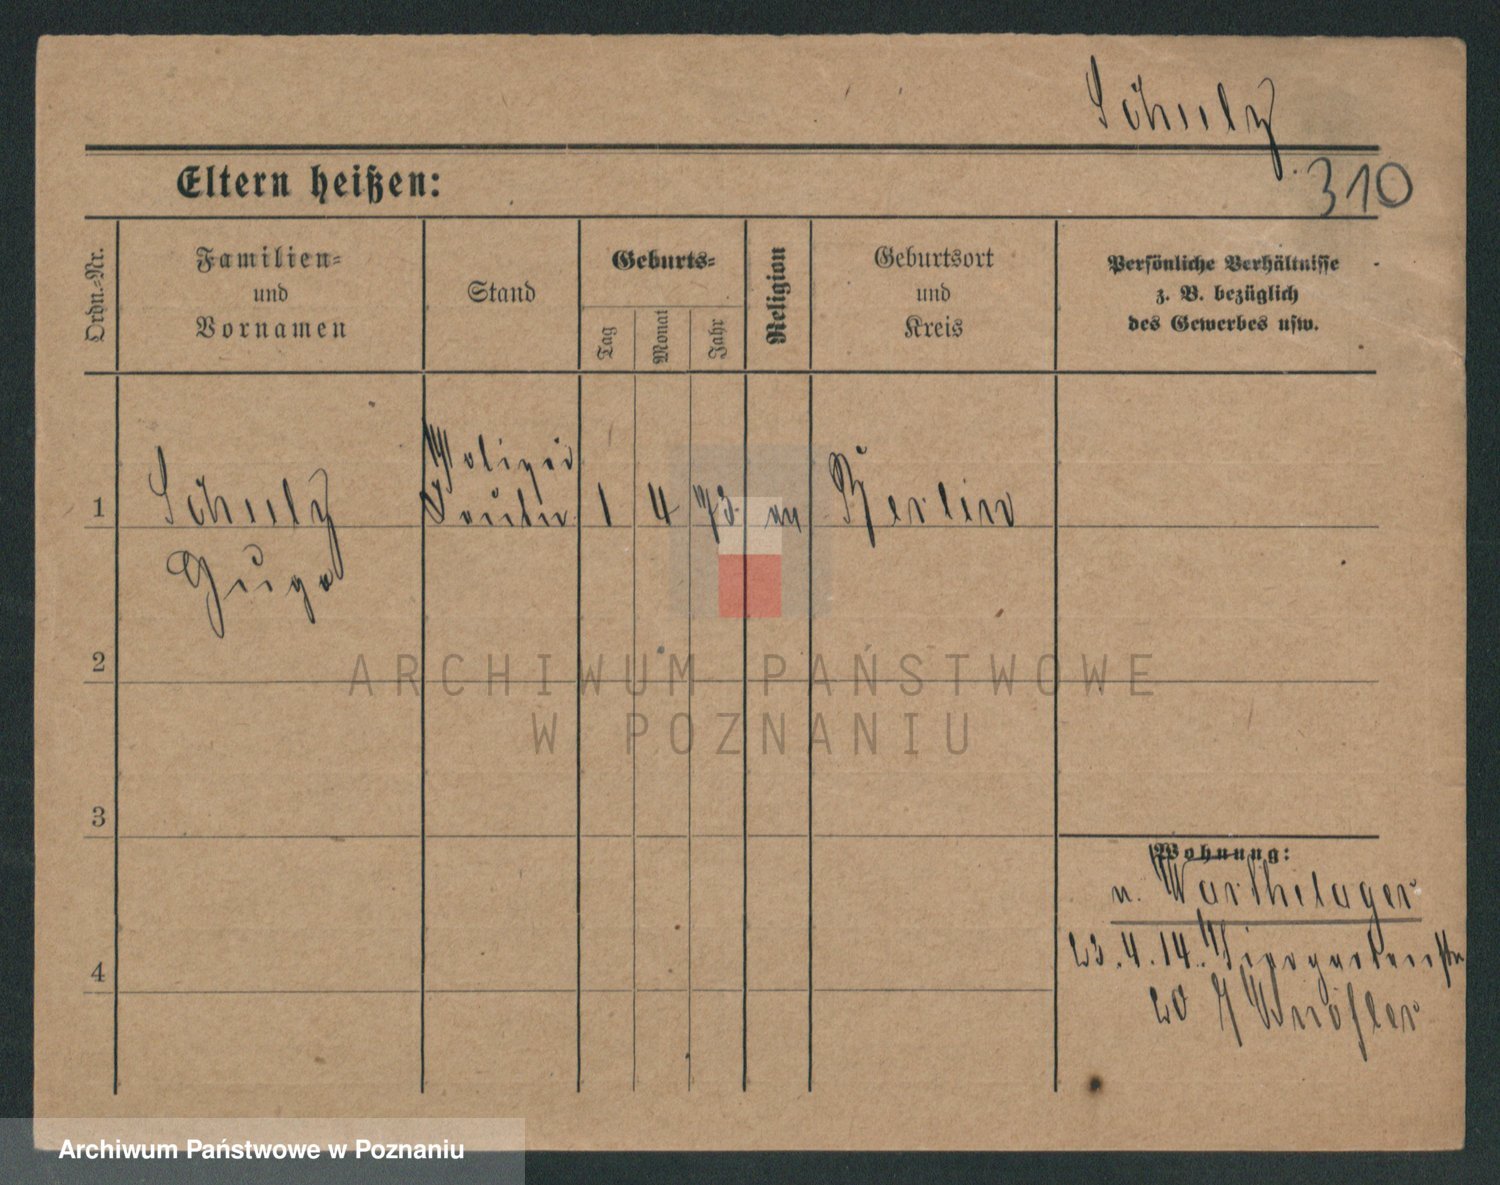 Schulz
310
Eltern heißen:
Ordn.-Nr.
Familien-
und
Vornamen
Stand
Geburts-
Tag
Monat
Jahr
Religion
Geburtsort
und
Kreis
Persönliche Verhältnisse
z. B. bezüglich
des Gewerbes usw.
1
Schulz
Hugo
Polizei
1
4
73.
Berlin
2
ARCHIWUM PAŃSTWOWE
W POZNANIU
3
4
Wohnung:
n. Warthelager
23.4.14. Tiergartenstr
20
Archiwum Państwowe w Poznaniu